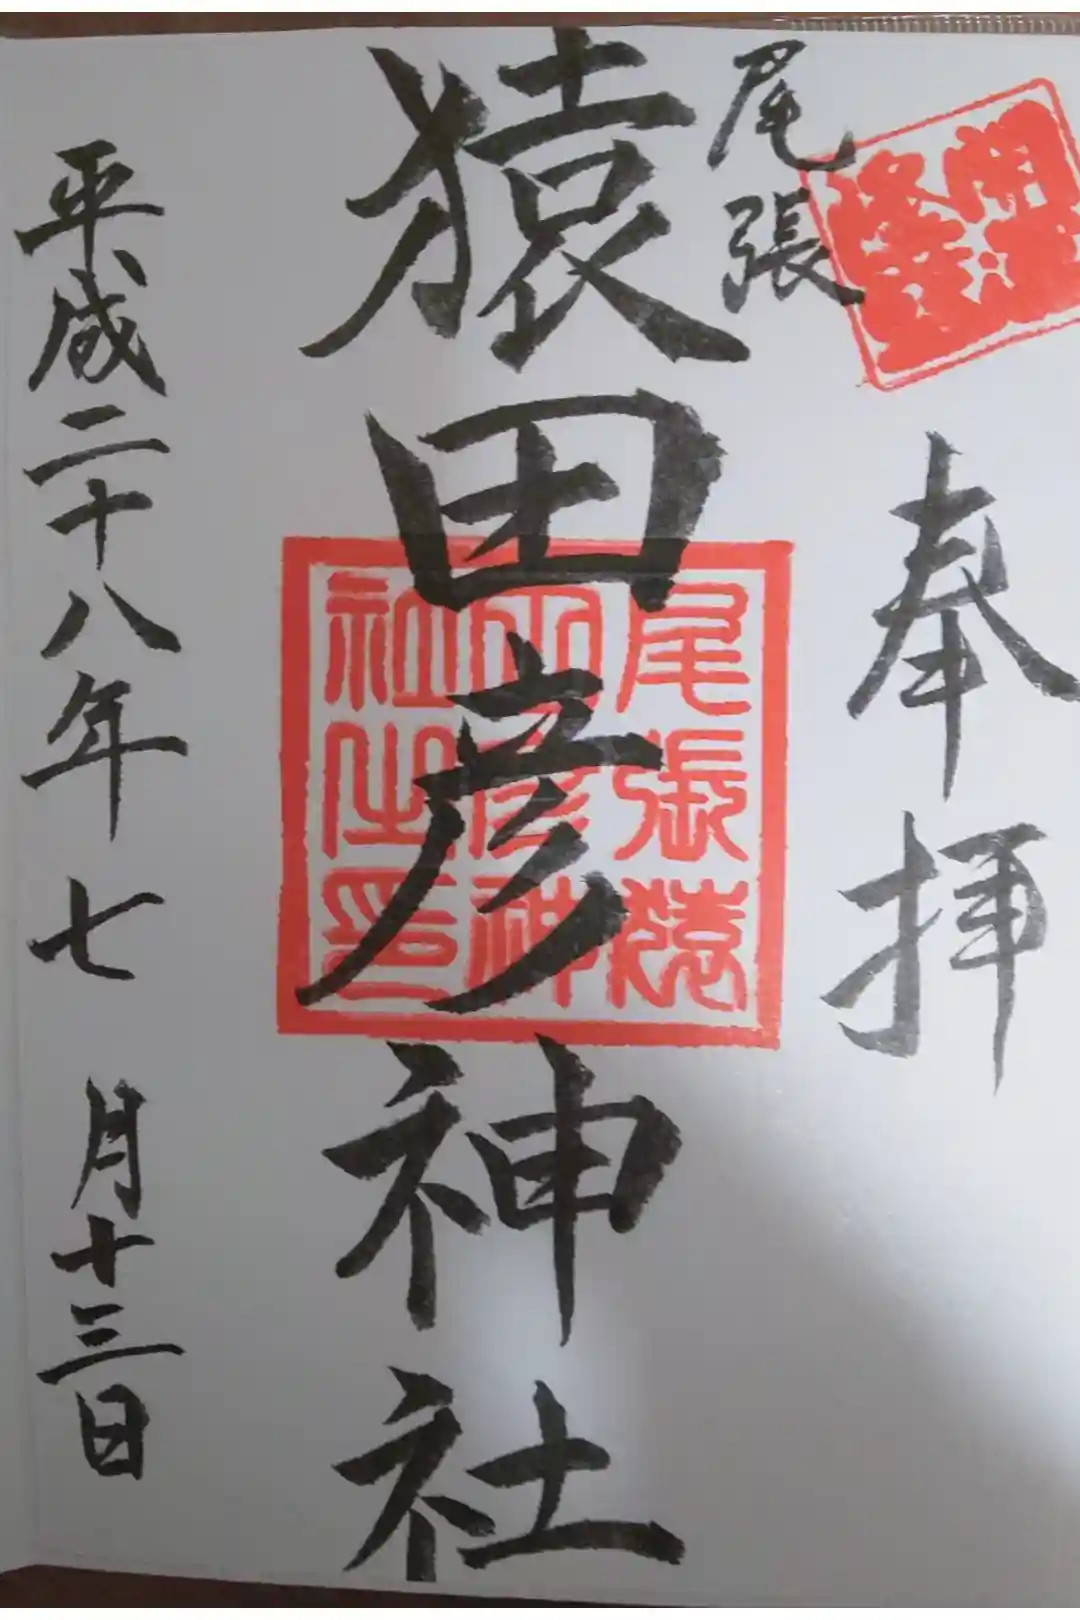 奉拝
尾張
猿田彦神社
尾張猿
田彦神
社之印
平成二十八年七月十三日